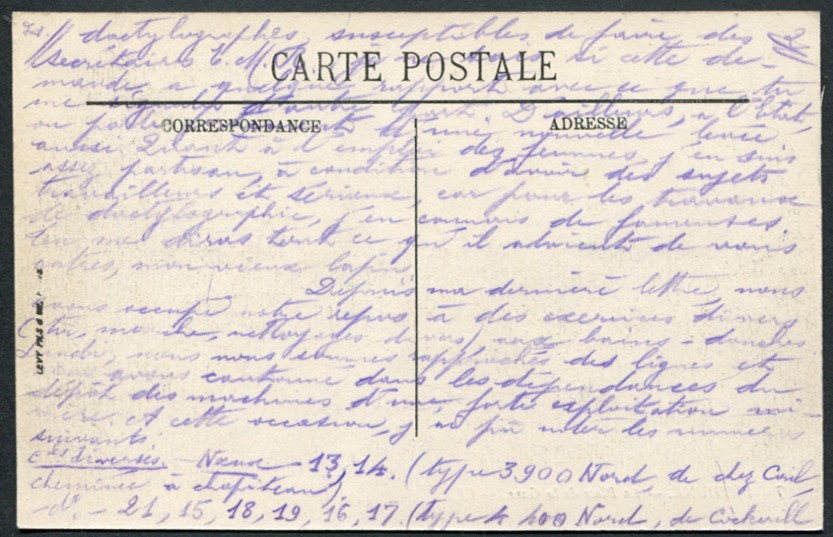 dactylographes susceptibles de faire des 2
secrétaires E. M. si cette de-
CARTE POSTALE
mande a quelque rapport avec ce que tu
me signales d'autre part. D'ailleurs, à l'Etat,
on parle d'une nouvelle levée
CORRESPONDANCE
ADRESSE
aussi. Quant à l'emploi des femmes, j'en suis
assez partisan, à condition d'avoir des sujets
travailleurs et sérieux, car pour les travaux
de dactylographie, j'en connais de fameuses.
Tu me diras tout ce qu'il advient de vous
autres, mon vieux lapin.
Depuis ma dernière lettre, nous
avons occupé notre repos à des exercices divers
tir, marche, nettoyages divers, aux bains-douches
Lundi, nous nous sommes rapprochés des lignes et
avons cantonné dans les dépendances du
dépôt des machines d'une forte exploitation mi-
nière. A cette occasion, j'ai pu noter les numéros
suivants.
Cies diverses. - Nœux - 13, 14. (type 3900 Nord, de chez Cail,
cheminée à chapiteau)
-do- - 21, 15, 18, 19, 16, 17. (type 4 400 Nord, de Cockerill
LEVY FILS & CIE